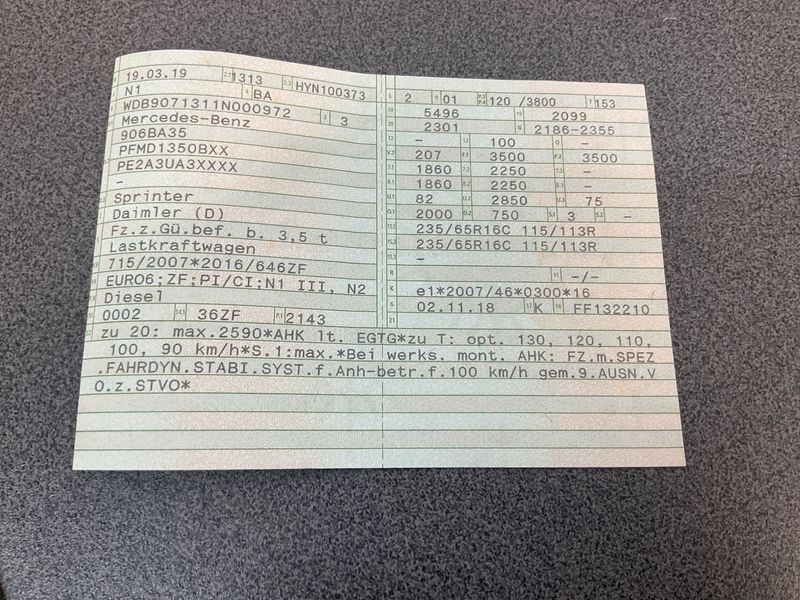 19.03.19 2.1 1313 2.2 HYN100373
N1 4 BA
WDB9071311N000972
Mercedes-Benz 3 3
906BA35
PFMD1350BXX
PE2A3UA3XXXX
-
Sprinter
Daimler (D)
Fz.z.Gü.bef. b. 3,5 t
Lastkraftwagen
715/2007*2016/646ZF
EURO6;ZF;PI/CI;N1 III, N2
Diesel
0002 14.1 36ZF P.1 2143
L 2 9 01 P.2 P.4 120 /3800 T 153
18 5496 19 2099
20 2301 G 2186-2355
12 - 13 100 Q -
V.7 207 F.1 3500 F.2 3500
7.1 1860 7.2 2250 7.3 -
8.1 1860 8.2 2250 8.3 -
U.1 82 U.2 2850 U.3 75
O.1 2000 O.2 750 S.1 3 S.2 -
15.1 235/65R16C 115/113R
15.2 235/65R16C 115/113R
15.3 -
R 11 -/-
K e1*2007/46*0300*16
6 02.11.18 17 K 16 FF132210
21
zu 20: max.2590*AHK lt. EGTG*zu T: opt. 130, 120, 110,
100, 90 km/h*S.1:max.*Bei werks. mont. AHK: FZ.m.SPEZ
.FAHRDYN.STABI.SYST.f.Anh-betr.f.100 km/h gem.9.AUSN.V
O.z.STVO*